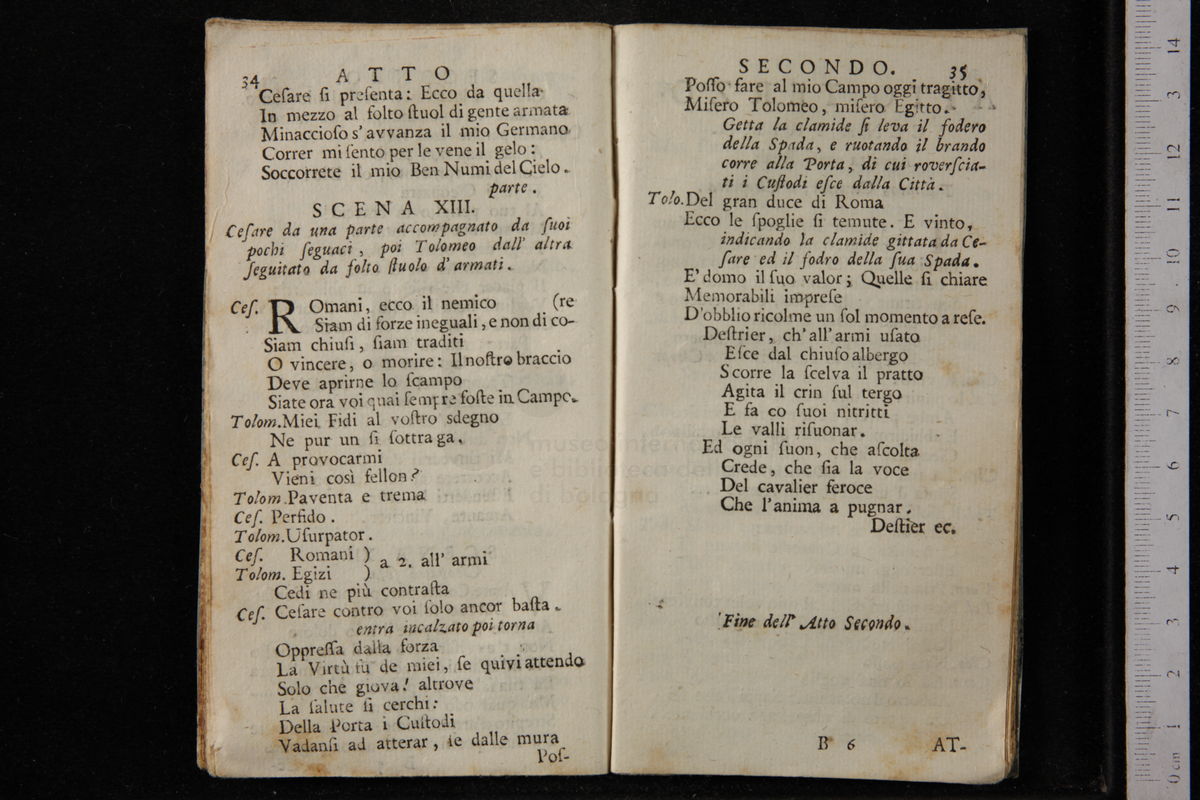 34 ATTO
Ceſare ſi preſenta: Ecco da quella
In mezzo al folto ſtuol di gente armata
Minaccioſo s'avvanza il mio Germano
Correr mi ſento per le vene il gelo:
Soccorrete il mio Ben Numi del Cielo.
parte.
SCENA XIII.
Ceſare da una parte accompagnato da ſuoi
pochi ſeguaci, poi Tolomeo dall' altra
ſeguitato da folto ſtuolo d'armati.
Ceſ. ROmani, ecco il nemico (re
Siam di forze ineguali, e non di co-
Siam chiuſi, ſiam traditi
O vincere, o morire: Il noſtro braccio
Deve aprirne lo ſcampo
Siate ora voi quai ſempre foſte in Campo.
Tolom. Miei Fidi al voſtro sdegno
Ne pur un ſi ſottraga.
Ceſ. A provocarmi
Vieni così fellon?
Tolom. Paventa e trema
Ceſ. Perfido.
Tolom. Uſurpator.
Ceſ. Romani )
a 2. all' armi
Tolom. Egizi )
Cedi ne più contraſta
Ceſ. Ceſare contro voi ſolo ancor baſta.
entra incalzato poi torna
Oppreſſa dalla forza
La Virtù fù de miei, ſe quivi attendo
Solo che giova! altrove
La ſalute ſi cerchi:
Della Porta i Cuſtodi
Vadanſi ad atterar, ſe dalle mura
Poſ-
SECONDO. 35
Poſſo fare al mio Campo oggi tragitto,
Miſero Tolomeo, miſero Egitto.
Getta la clamide ſi leva il fodero
della Spada, e ruotando il brando
corre alla Porta, di cui roverſcia-
ti i Cuſtodi eſce dalla Città.
Tolo. Del gran duce di Roma
Ecco le ſpoglie ſi temute. E vinto,
indicando la clamide gittata da Ce-
ſare ed il fodro della ſua Spada.
E' domo il ſuo valor; Quelle ſi chiare
Memorabili impreſe
D'obblio ricolme un ſol momento a reſe.
Deſtrier, ch'all'armi uſato
Eſce dal chiuſo albergo
Scorre la ſcelva il pratto
Agita il crin ſul tergo
E fa co ſuoi nitritti
Le valli riſuonar.
Ed ogni ſuon, che aſcolta
Crede, che ſia la voce
Del cavalier feroce
Che l'anima a pugnar.
Deſtier ec.
Fine dell' Atto Secondo.
B 6 AT-
museo
e biblioteca del
di bologna
0 cm 1 2 3 4 5 6 7 8 9 10 11 12 3 14